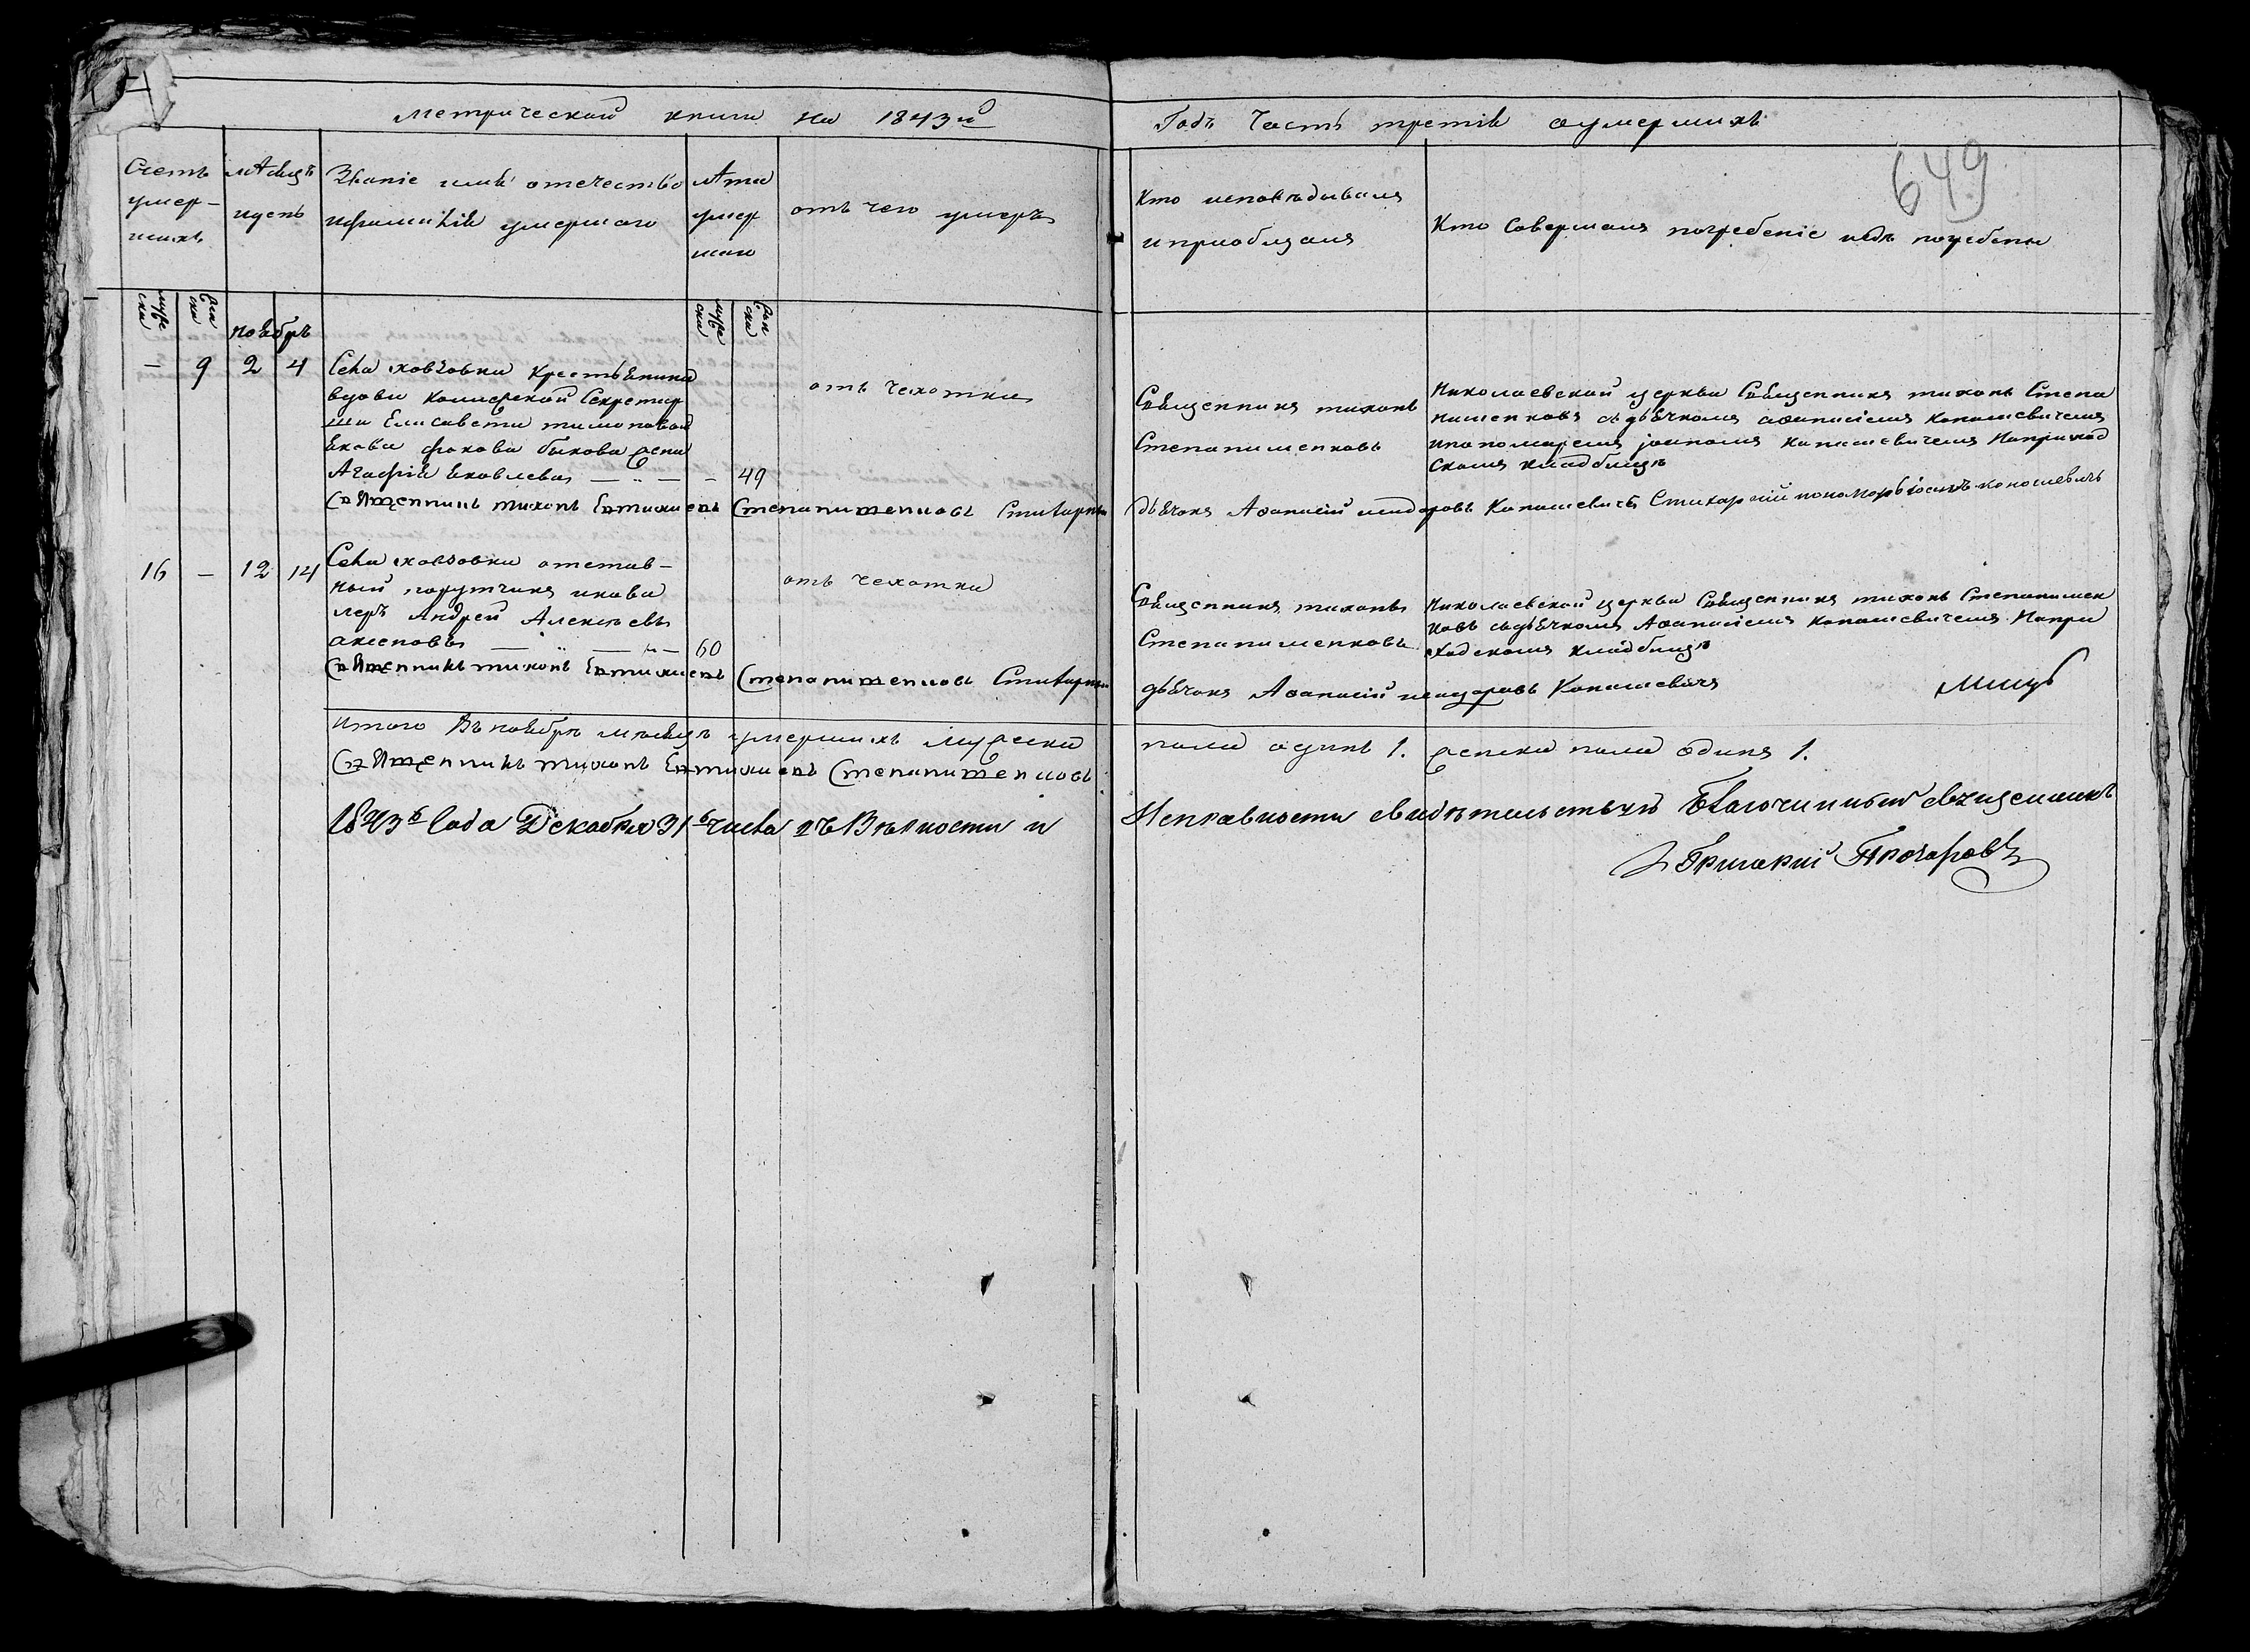 Метрической книги на 1843й
Годъ Часть третія о умершихъ
649
Счетъ
умер-
шихъ
мѣсяцъ
и день
Званіе имя отечество
и фамилія умершаго
лѣта
умер
шаго
отъ чего умеръ
Кто исповѣдывалъ
и приобщалъ
Кто Совершалъ погребеніе и гдѣ погребены
муже
ски
жен
ски
муже
ски
жен
ски
ноябръ
— 9 2 4
Села ховзовки крестьянина
вдовы Секретар
ши Елисаветы
Якова быкова жена
Агафія Яковлева — „ — — 49
отъ чахотки
Священникъ тихонъ
Степанищенковъ
Николаевской церкви Священникъ тихонъ Степа
нищенковъ съ дьячкомъ афанасіемъ Капашевичемъ
и пономаремъ іоаномъ Капашевичемъ На приход
скомъ кладбищѣ
Священникъ тихонъ Евтихиевъ Степанищенковъ Стихарный
дьячокъ Афанасій Капашевичъ Стихарный пономарь
16 — 12 14
Села ховзовки отстав-
ной порутчикъ и кава
леръ Андрей Алексѣевъ
аксеновъ — „ — „ — 60
отъ чахотки
Священникъ тихонъ
Степанищенковъ
Николаевской церкви Священникъ тихонъ Степанищен
ковъ съ дьячкомъ Афанасіемъ Капашевичемъ На при
ходскомъ кладбищѣ
Священникъ тихонъ Евтихиевъ Степанищенковъ Стихарный
дьячокъ Афанасій Капашевичъ
Итого Въ ноябрѣ мѣсяцѣ умершихъ мужески
пола одинъ 1. женски пола одинъ 1.
Священникъ тихонъ Евтихиевъ Степанищенковъ
1843го Года Декабря 31го числа въ Вѣрности и
Исправности свидѣтельствуетъ Благочинный священникъ
Григорий